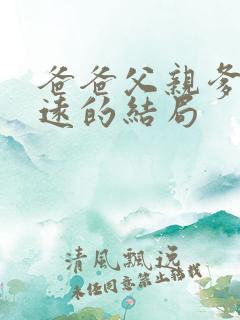 爸爸父親爹
遠的結局
清風飄逸
未经同意禁止转载